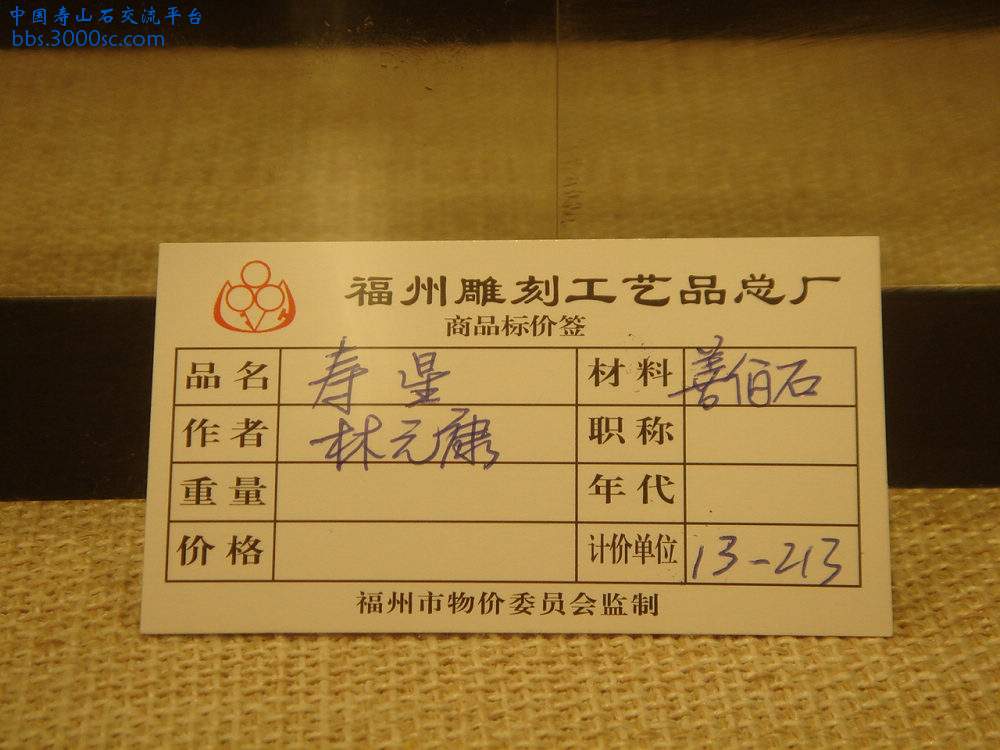 中国寿山石交流平台
bbs.3000sc.com
福州雕刻工艺品总厂
商品标价签
品名 寿星 材料 善伯石
作者 林元康 职称
重量 年代
价格 计价单位 13-213
福州市物价委员会监制